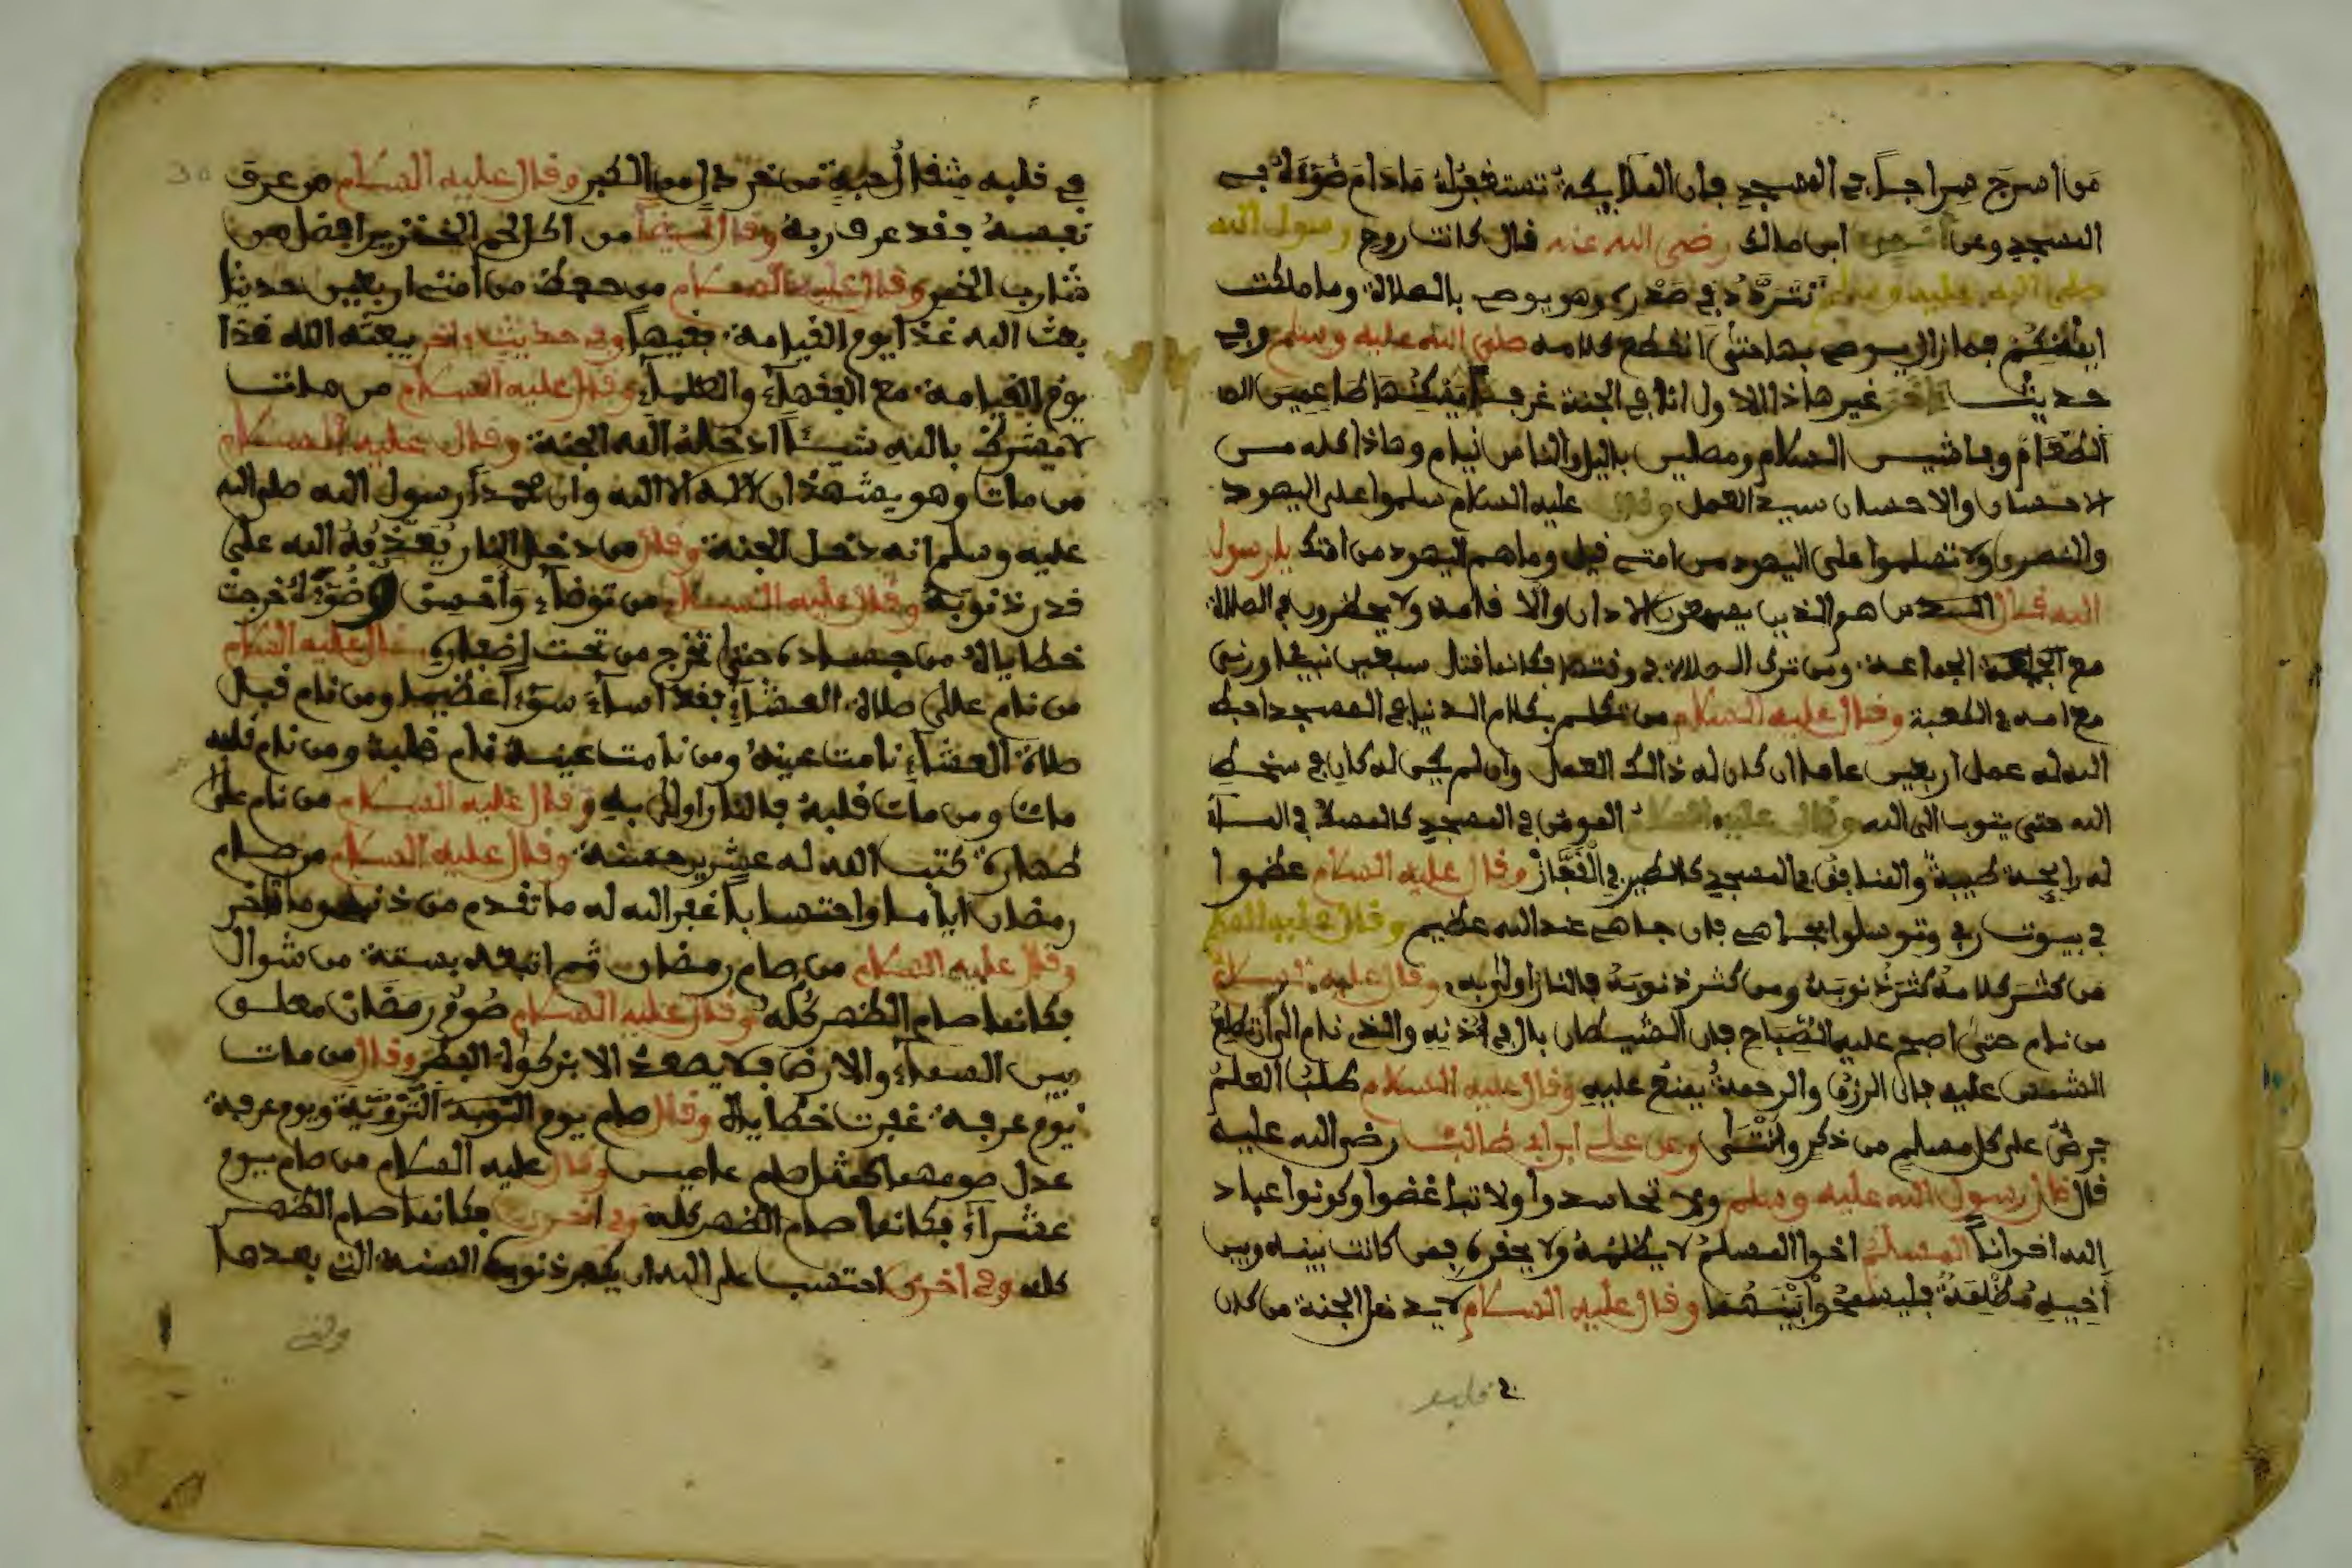 من اسرج سراجا في المسجد فان الملايكة تستغفر له ما دام ضوءه في
المسجد وعن انس ابن مالك رضي الله عنه قال كانت روح رسول الله
صلى الله عليه وسلم تتردد في صدره وهو يوصي بالصلاة وما ملكت
ايمانكم فما زال يوصي بها حتى انقطع كلامه صلى الله عليه وسلم وفي
حديث اخر غير هاذا الاول ان في الجنة غرفا يسكنها طاعمين
الطعام وفاشيين السلام ومصليين باليل والناس نيام وهاذا كله من
الاحسان والاحسان سيد العمل وقال عليه السلام سلموا على اليهود
والنصرى ولا تسلموا على اليهود من امتي قيل وما هم اليهود من امتك يا رسول
الله قال الذين يسمعون الاذان والاقامة ولا يحضرون في الصلاة
مع الجماعة ومن ترك الصلاة في وقتها فكانما قتل سبعين نبيا وزنى
مع امه في الكعبة وقال عليه السلام من تكلم بكلام الدنيا في المسجد احبط
الله له عمل اربعين عاما ان كان له ذالك العمل وان لم يكن له كان في سخط
الله حتى يتوب الى الله وقال عليه السلام المومن في المسجد كالسمك في الماء
له رايحة طيبة والمنافق في المسجد كالطير في القفاز وقال عليه السلام عظموا
في بيوت ربي وتوسلوا بجاهي فان جاهي عند الله عظيم وقال عليه السلام
من كثر كلامه كثر ذنوبه ومن كثر ذنوبه فالنار اولى به وقال عليه السلام
من نام حتى اصبح عليه الصباح فان الشيطان بال في اذنه والذي نام الى ان تطلع
الشمس عليه فان الرزق والرحمة يمنع عليه وقال عليه السلام طلب العلم
فرض على كل مسلم من ذكر وانثى وعن علي ابن ابي طالب رضي الله عليه
قال قال رسول الله عليه وسلم ولا تحاسدوا ولا تباغضوا وكونوا عباد
الله اخوانا المسلم اخوا المسلم لا يظلمه ولا يحقره فمن كانت بينه وبين
اخيه مظلمة فليسمحوا بينهما وقال عليه السلام لا يدخل الجنة من كان
في قلبه
في قلبه مثقال حبة من خردل من الكبر وقال عليه السلام من عرف
نفسه فقد عرف ربه وقال ايضا من اكل لحم الخنزير افضل من
شارب الخمر وقال عليه السلام من حفظ من امتي اربعين حديثا
بعث الله غدا يوم القيامة فقيها وفي حديث اخر يبعثه الله غدا
يوم القيامة مع الفقهاء والعلماء وقال عليه السلام من مات
لا يشرك بالله شيئا ادخله الله الجنة وقال عليه السلام
من مات وهو يشهد ان لا اله الا الله وان محمدا رسول الله صلى الله
عليه وسلم انه دخل الجنة وقال من دخل النار يعذبه الله على
قدر ذنوبه وقال عليه السلام من توضأ واحسن وضوءه خرجت
خطاياه من جسده حتى تخرج من تحت اضفاره قال عليه السلام
من نام على صلاة العشاء فقد اساء سوءا عظيما ومن نام قبل
صلاة العشاء نامت عينه ومن نامت عينه نام قلبه ومن نام قلبه
مات ومن مات قلبه فالنار اولى به وقال عليه السلام من نام على
طهارة كتب الله له عشرين حسنة وقال عليه السلام من صام
رمضان ايمانا واحتسابا غفر الله له ما تقدم من ذنبه وما تاخر
وقال عليه السلام من صام رمضان ثم اتبعه بستة من شوال
فكانما صام الظهر كله وقال عليه السلام صوم رمضان معلق
بين السماء والارض فلا يصعد الا بزكواة الفطر وقال من مات
يوم عرفة غفرت خطاياه وقال صام يوم التروية ويوم عرفة
عدل صومهما كمثل صام عامين وقال عليه السلام من صام يوم
عشراء فكانما صام الظهر كله وفي اخرى فكانما صام الظهر
كله وفي اخرى احتسب على الله ان يكفر ذنوب السنة التي بعدها